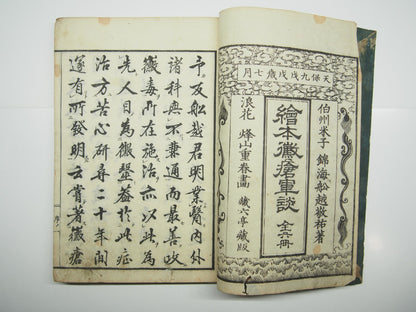 天保九戊戌歳七月
伯州米子 錦海船越敬祐著
繪本黴瘡軍談 全六冊
浪花 峰山重春畫 蔵六亭蔵版
予友船越君明業醫内外
諸科無不兼通而最善攻
黴毒所在施治亦以此為
先人目為黴醫蓋於此症
治方苦心研尋二十年間
遂有所發明云嘗著黴瘡